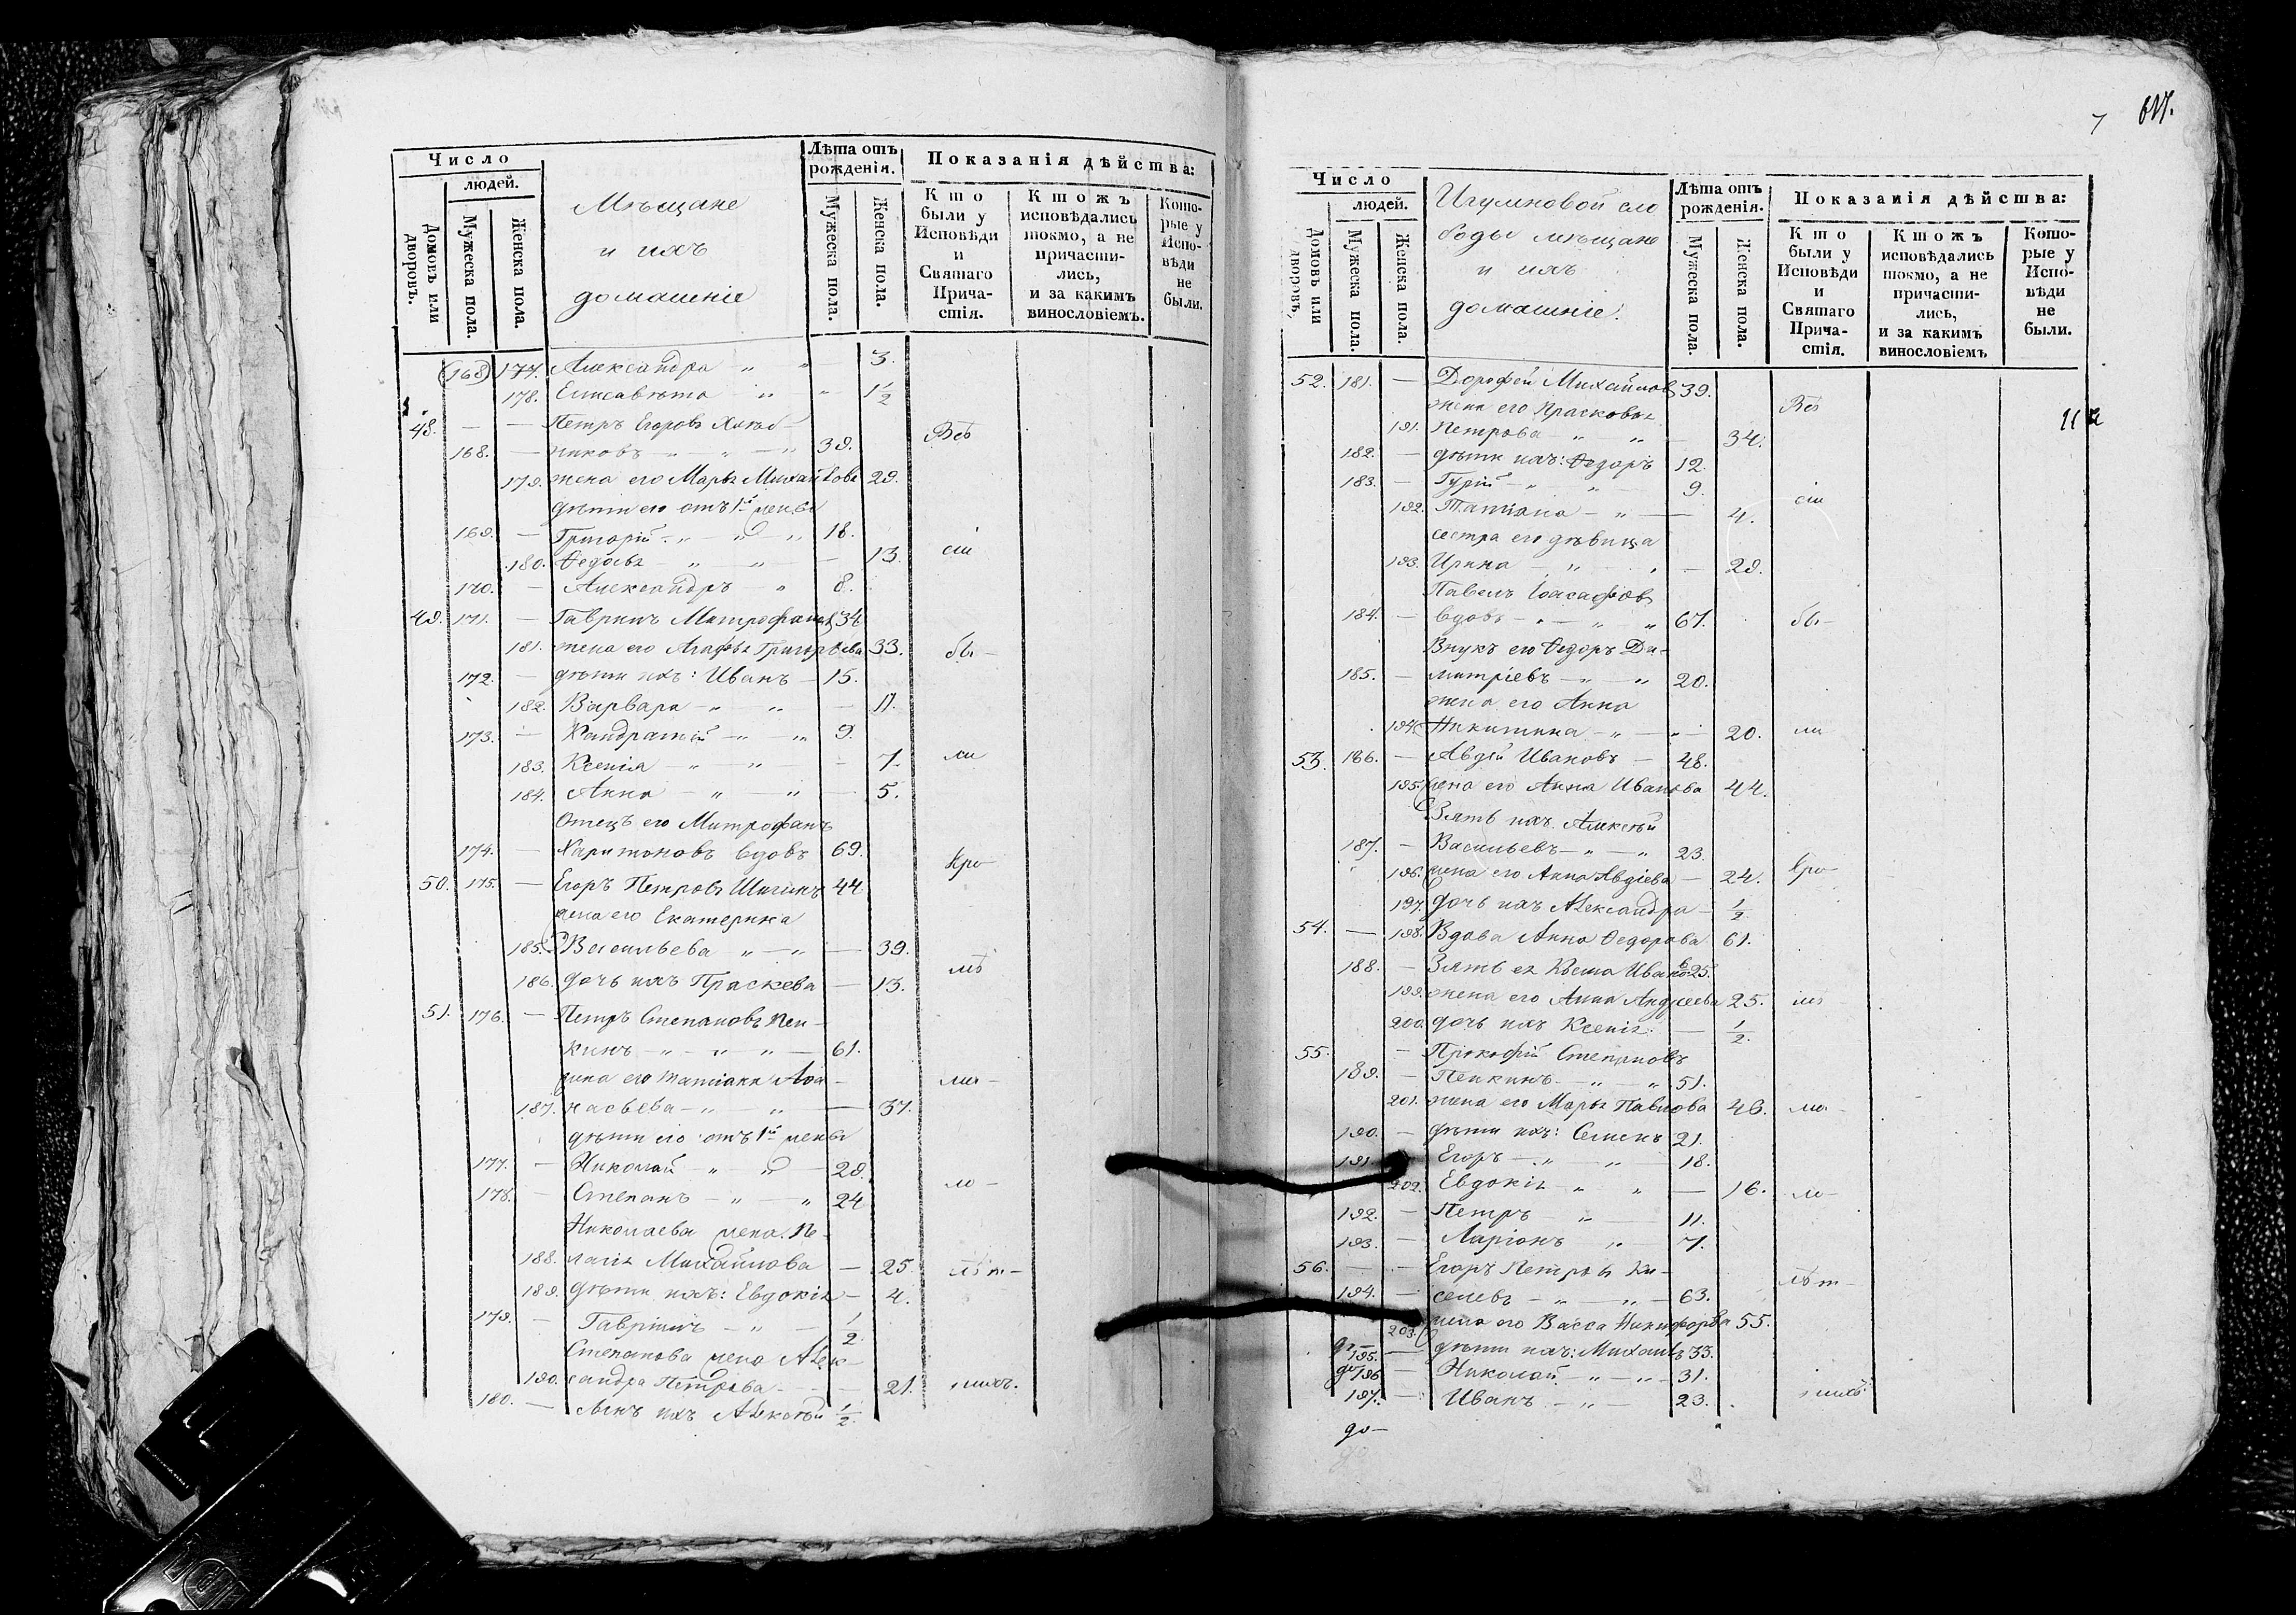 Число
людей.
Домовъ или дворовъ.
Мужеска пола.
Женска пола.
Мѣщане
и ихъ
домашніе
Лѣта отъ
рожденія.
Мужеска пола.
Женска пола.
Показанія дѣйства:
Кто
были у
Исповѣди
и
Святаго
Прича-
стія.
Ктожъ
исповѣдались
токмо, а не
причасти-
лись,
и за какимъ
винословіемъ.
Кото-
рые у
Испо-
вѣди
не
были.
(168) 177. Александра „ „ — 3.
178. Елисавета „ „ 1 1/2
48. — — Петръ Егоровъ Хлѣб-
168. — никовъ — „ — „ — „ 39. Всѣ
179. жена его Марья Михайлова 29.
дѣти его отъ 1й жены
169. — Григорій „ — „ „ 18.
180. Ѳедосья — „ „ — 13. сіи
170. — Александръ „ 8.
49. 171. — Гаврилъ Митрофановъ 34
181. жена его Агафья Григорьева 33. бы-
172. — дѣти ихъ: Иванъ — 15.
182. Варвара — „ „ — 11.
173. — Кандратій — „ — „ 9.
183. Ксенія — „ — „ — 7. ли
184. Анна — „ — „ — 5.
Отецъ его Митрофанъ
174. — Харитоновъ вдовъ 69. кро-
50. 175. — Егоръ Петровъ Шигинъ 44.
жена его Екатерина
185. Васильева „ — „ — 39.
186. дочь ихъ Праскева — 13. мѣ
51. 176. — Петръ Степановъ Пен-
кинъ — „ — „ — „ — 61.
жена его Татіана Аѳа-
187. насьева — „ „ — 37. ма-
дѣти его отъ 1й жены
177. — Николай — „ „ — 29.
178. — Степанъ — „ — „ 24 ло-
Николаева жена Пе-
188. лагія Михайлова — 25. лѣт-
189. дѣти ихъ: Евдокія — 4.
179. — Гавріилъ — „ — 1/2
Степанова жена Алек-
190. сандра Петрова — — 21. нихъ.
180. — сынъ ихъ Алексѣй 1/2.
7 617.
Число
людей.
Домовъ или дворовъ,
Мужеска пола.
Женска пола.
Игумновой сло
боды мѣщане
и ихъ
домашніе.
Лѣта отъ
рожденія.
Мужеска пола.
Женска пола.
Показанія дѣйства:
Кто
были у
Исповѣди
и
Святаго
Прича-
стія.
Ктожъ
исповѣдались
токмо, а не
причасти-
лись,
и за какимъ
винословіемъ
Кото-
рые у
Испо-
вѣди
не
были.
52. 181. — Дорофей Михайловъ 39.
жена его Прасковья Всѣ
191. Петрова — „ „ — 34.
182. — дѣти ихъ: Ѳедоръ 12.
183. — Гурій — „ „ — 9.
192. Татіана — „ — — 4. сіи
сестра его дѣвица
193. Ирина — „ — „ — 29.
Павелъ Іоасафовъ
184. — вдовъ — „ — „ „ 67. бы-
Внукъ его Ѳедоръ Ди-
185. — митріевъ — „ — „ 20.
жена его Анна
194. Никитина — „ — „ — 20. ли
53. 186. — Авдѣй Ивановъ — 48.
195. жена его Анна Иванова 44.
Зять ихъ Алексѣй
187. — Васильевъ — „ — „ 23.
196. жена его Анна Авдіева — 24. кро-
197. дочь ихъ Александра — 1/2.
54. — 198. Вдова Анна Ѳедорова 61.
188. — Зять ея Козма Ивановъ 25.
199. жена его Анна Андреева 25. мѣ
200. дочь ихъ Ксенія. — 1/2.
55. — Прокофій Степановъ
189. — Пенкинъ. — „ — „ 51.
201. жена его Марья Павлова 46. ма-
190. — дѣти ихъ: Семенъ 21.
191. Егоръ — „ — „ — 18.
202. Евдокія — „ „ — 16. ло-
192. — Петръ — „ — 11.
193. — Ларіонъ „ — 7.
56. — — Егоръ Петровъ Ки-
194. — селевъ — „ — „ — 63. лѣт-
203. жена его Васса Никифорова 55.
195. — дѣти ихъ: Михаилъ 33.
196 — Николай — „ — „ — 31.
197. — Иванъ — „ — 23. нихъ.
до-